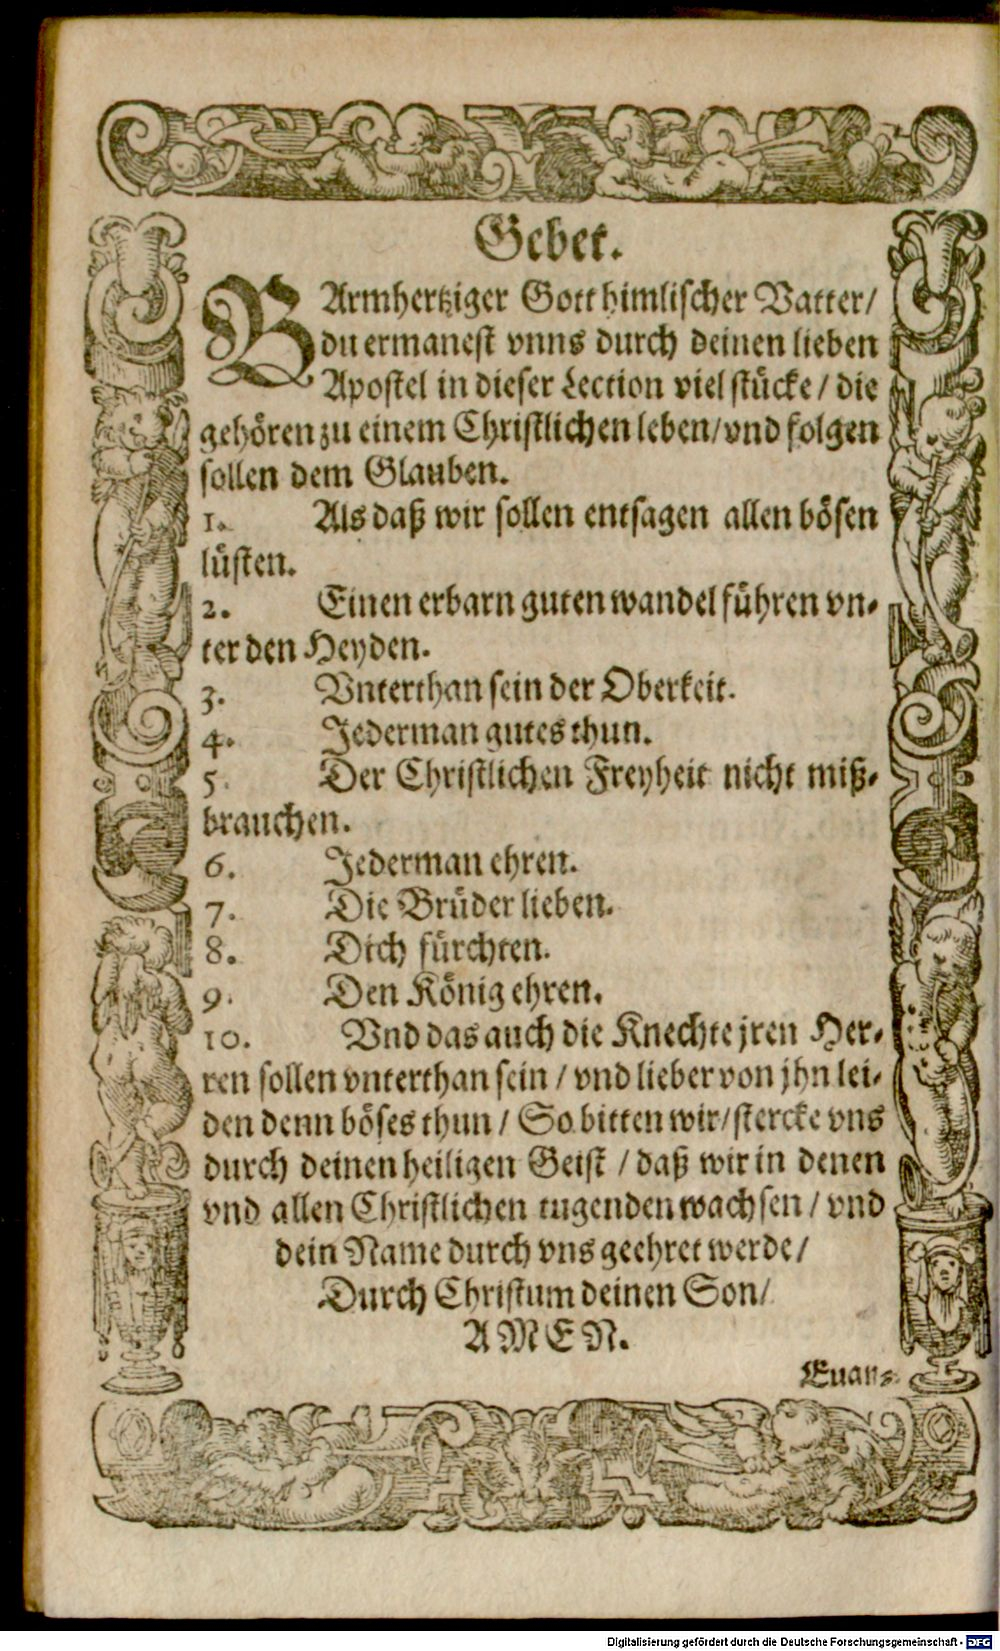 Gebet.
BArmhertziger Gott himlischer Vatter/
du ermanest vnns durch deinen lieben
Apostel in dieser Lection viel stücke / die
gehören zu einem Christlichen leben/vnd folgen
sollen dem Glauben.
1. Als daß wir sollen entsagen allen bösen
lüsten.
2. Einen erbarn guten wandel führen vn-
ter den Heyden.
3. Vnterthan sein der Oberkeit.
4. Jederman gutes thun.
5. Der Christlichen Freyheit nicht miß-
brauchen.
6. Jederman ehren.
7. Die Brüder lieben.
8. Dich fürchten.
9. Den König ehren.
10. Vnd das auch die Knechte jren Her-
ren sollen vnterthan sein / vnd lieber von jhn lei-
den denn böses thun / So bitten wir/stercke vns
durch deinen heiligen Geist / daß wir in denen
vnd allen Christlichen tugenden wachsen / vnd
dein Name durch vns geehret werde /
Durch Christum deinen Son/
AMEN.
Euan-
Digitalisierung gefördert durch die Deutsche Forschungsgemeinschaft - DFG